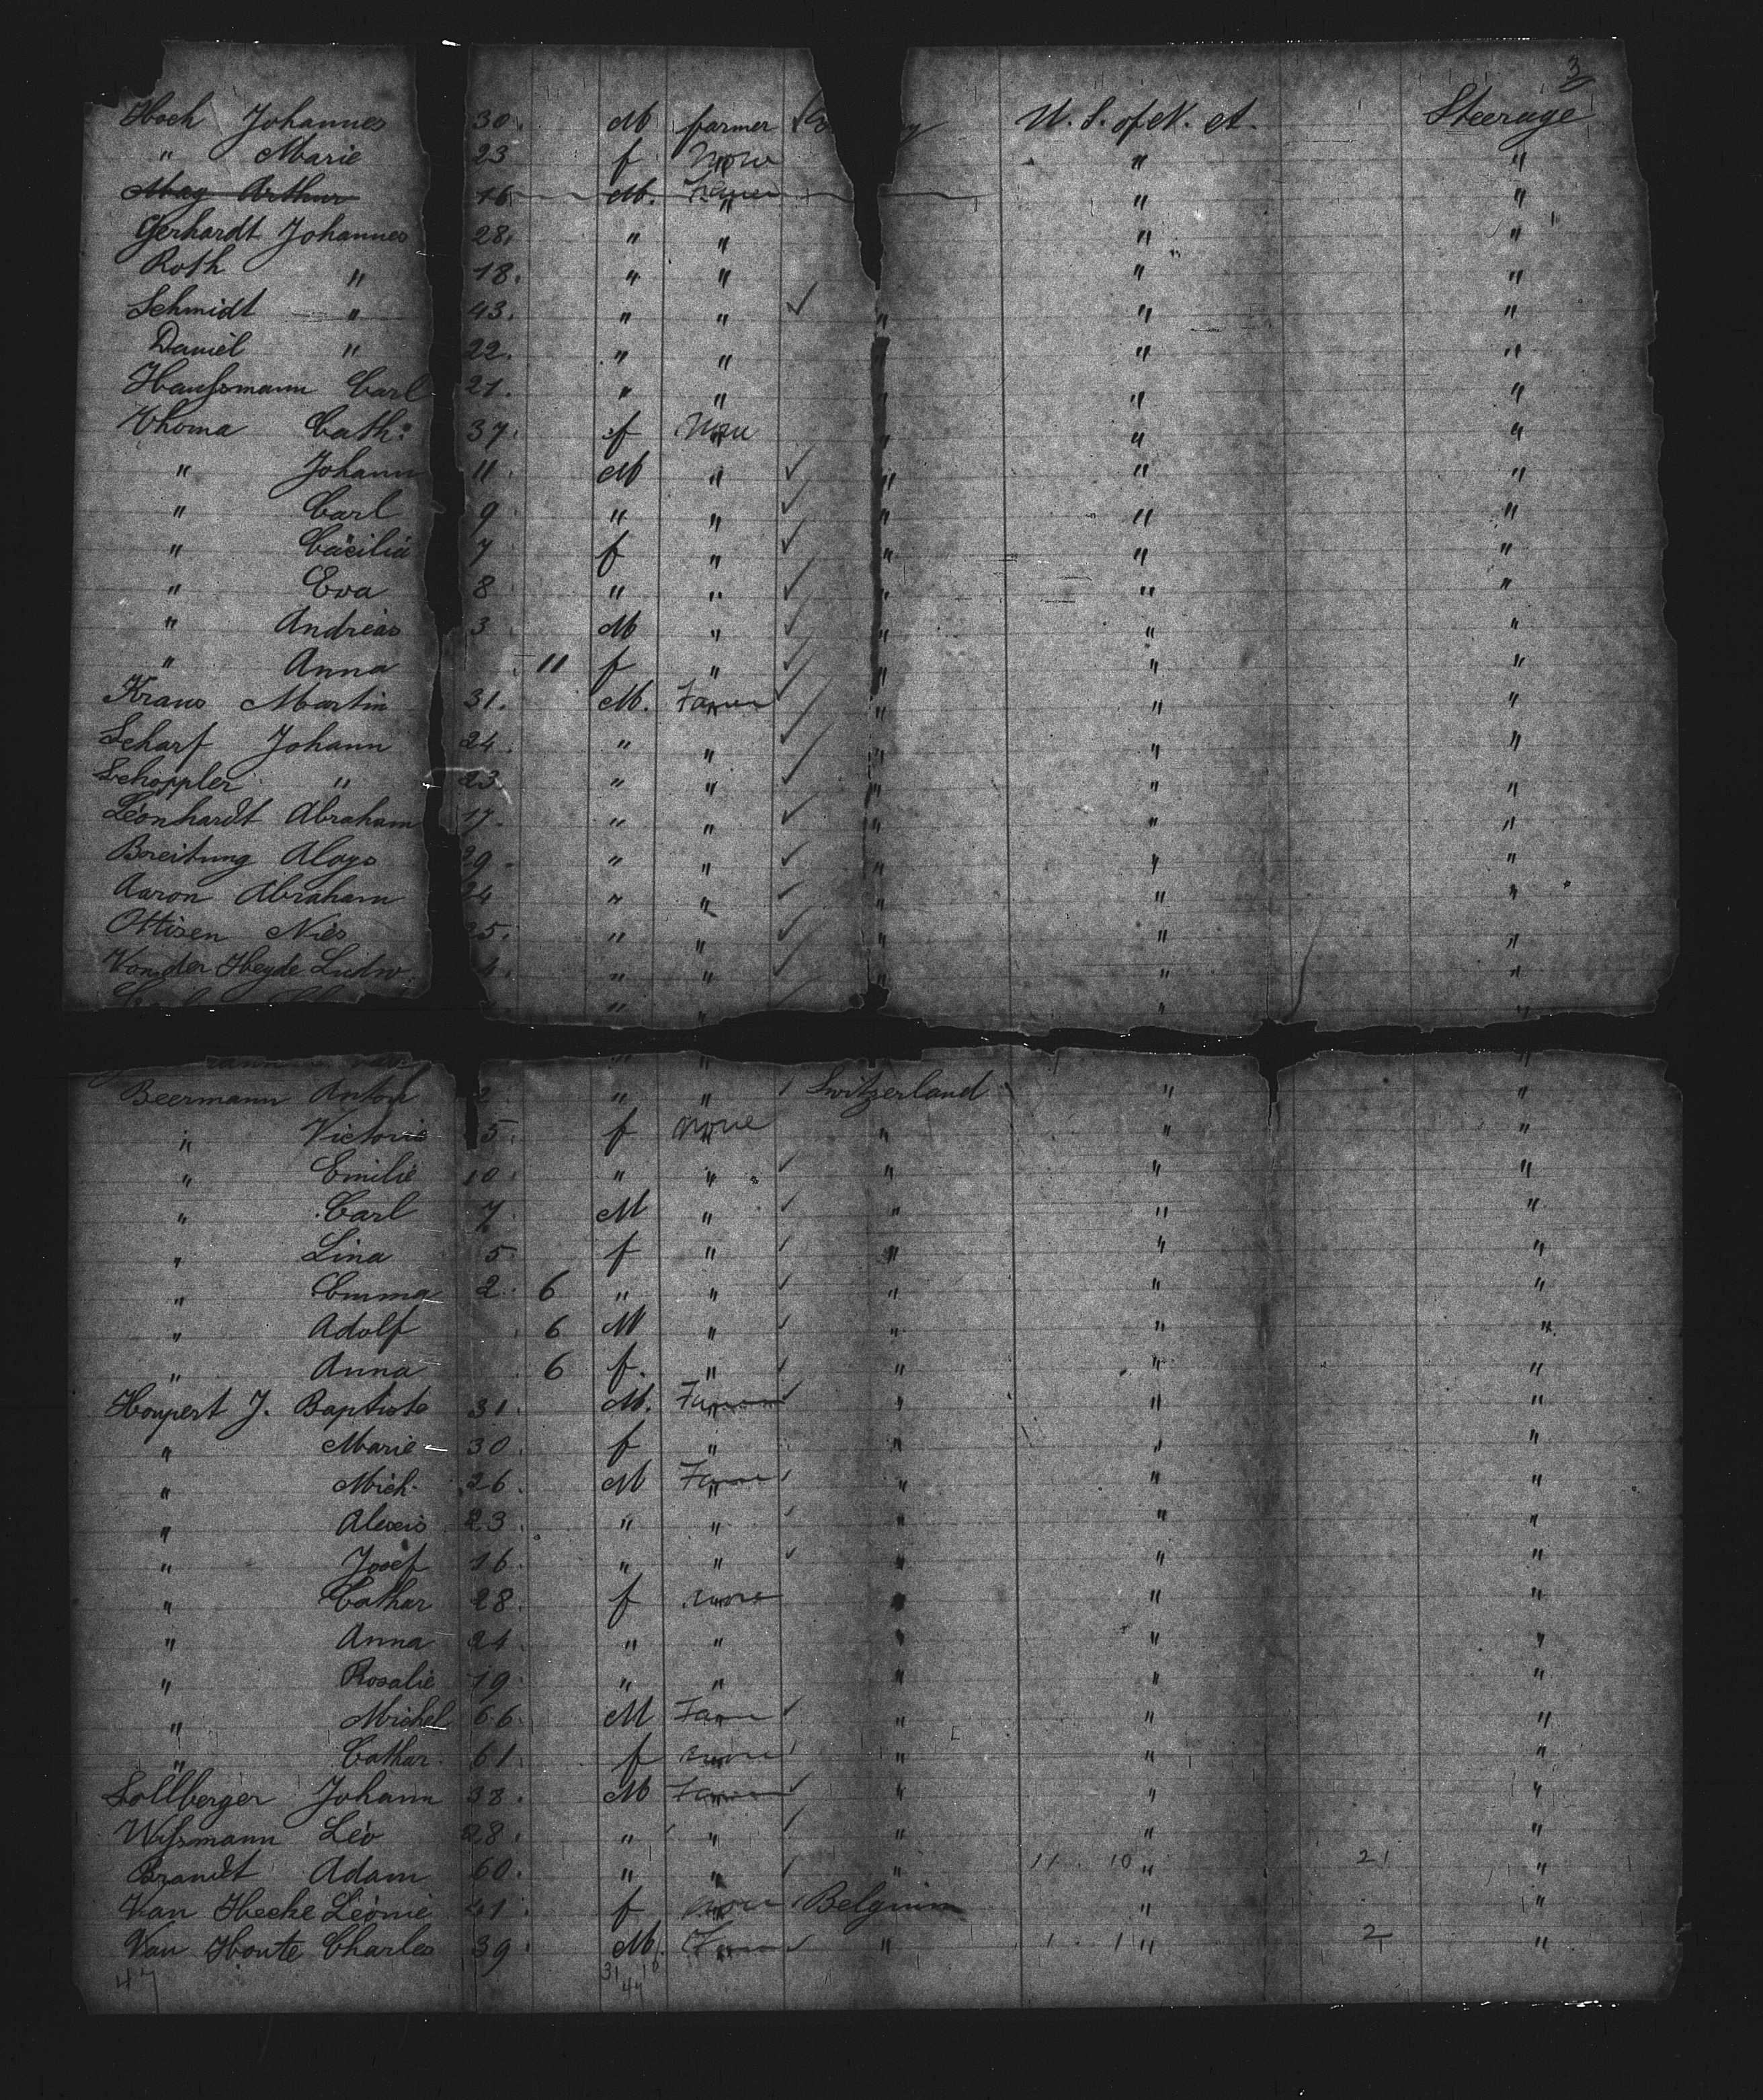 3
Hoch Johannes 30. M farmer U. S. of N. A. Steerage
" Marie 23 f None " "
May Arthur 16 M. Farmer " "
Gerhardt Johannes 28. " " " "
Roth " 18. " " " "
Schmidt " 43. " " ✓ " " "
Daniel " 22. " " " "
Haussmann Carl 21. " " " " "
Thoma Cath. 37. f None " " "
" Johann 11. M " ✓ " " "
" Carl 9 " " ✓ " " "
" Cäcilia 7 f " ✓ " " "
" Eva 8 " " ✓ " " "
" Andreas 3 M " ✓ " " "
" Anna 11 f " ✓ " " "
Kraus Martin 31. M. Farmer ✓ " " "
Scharf Johann 24. " " ✓ " " "
Schoppler " 23. " " ✓ " " "
Leonhardt Abraham 17. " " ✓ " " "
Breitung Aloys 29. " " ✓ " " "
Aaron Abraham 24 " " ✓ " " "
Ottisen Nies 25. " " ✓ " " "
Von der Heyde Ludw. 4. " " ✓ " " "
" " " "
" " "
Beermann Anton 2 " " ✓ Switzerland " "
" Victoria 5. f None " " "
" Emilie 10. " " ✓ " " "
" Carl 7. M " ✓ " " "
" Lina 5 f " ✓ " " "
" Emma 2. 6 " " ✓ " " "
" Adolf 6 M " ✓ " " "
" Anna 6 f. " ✓ " " "
Houpert J. Baptiste 31. M. Farmer ✓ " " "
" Marie 30. f " " " "
" Mich. 26. M Farmer ✓ " " "
" Alexis 23. " " ✓ " " "
" Josef 16. " " ✓ " " "
" Cathar 28. f none " " "
" Anna 24. " " " " "
" Rosalie 19. " " " " "
" Michel 66. M Farmer ✓ " " "
" Cathar. 61. f none " " "
Sollberger Johann 38. M Farmer ✓ " " "
Wissmann Leo 28. " " ✓ " " "
Brandt Adam 60. " " ✓ " 11. 10 " 21 "
Van Hecke Léonie 41. f none Belgium " "
Van Houte Charles 39. M. Farmer ✓ " 1. 1 " 2 "
47 31 16
47